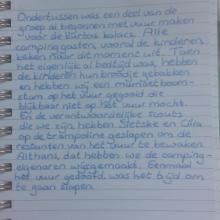 Ondertussen was een deel van de
groep al begonnen met vuur maken
voor de kurtos kalacs. Alle
campinggasten, vooral de kinderen
keken naar dit moment uit. Toen
het eigenlijk al bedtijd was, hebben
de kinderen hun broodje gebakken
en hebben wij een
stam op het vuur gegooid die
blijkbaar niet op het vuur mocht.
En de verantwoordelijke scouts
die we zijn, hebben Sietske en
op de trampoline geslapen om de
restanten van het vuur te bewaken.
Althans, dat hebben we de camping-
eigenaren wijsgemaakt. Eenmaal
het vuur gedoofd, was het tijd om
te gaan slapen.